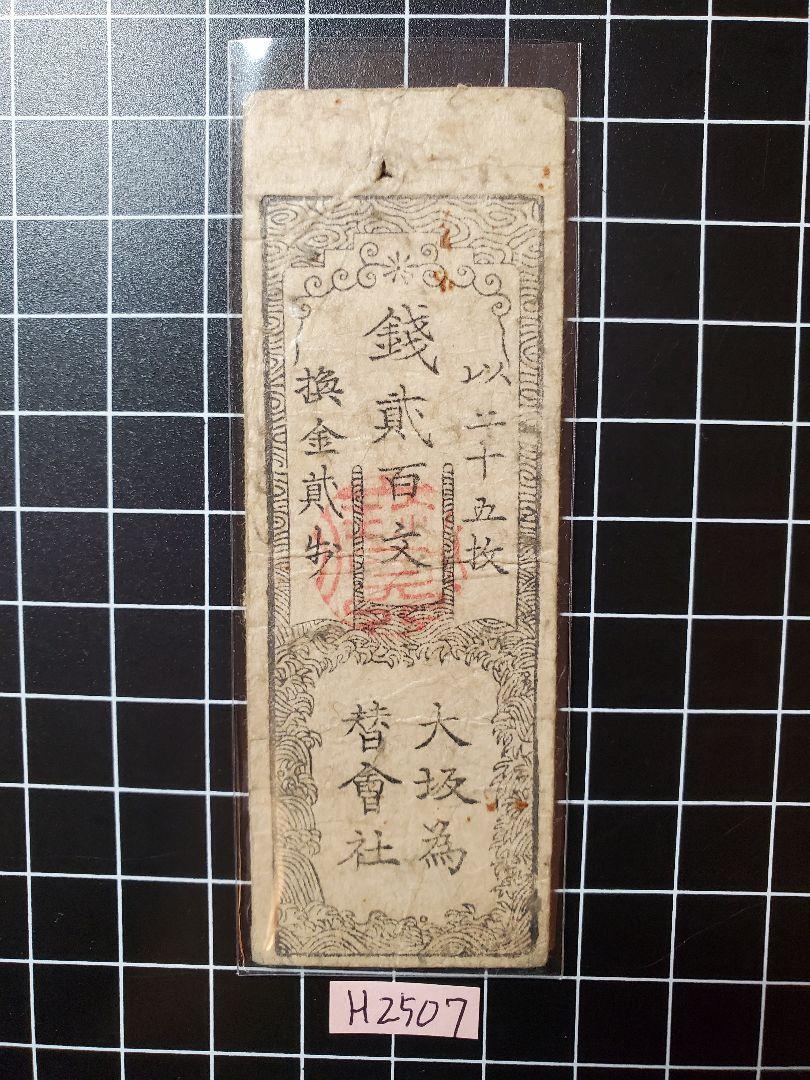 以二十五枚
錢貳百文
換金貳歩
大坂為
替會社
H2507